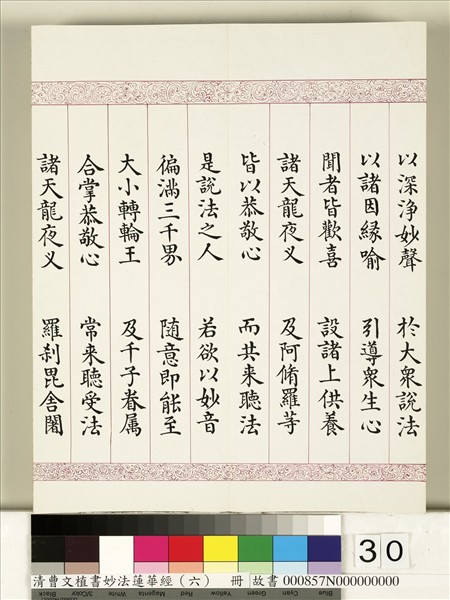 以深淨妙聲 於大衆說法
以諸因緣喻 引導衆生心
聞者皆歡喜 設諸上供養
諸天龍夜义 及阿脩羅䓁
皆以恭敬心 而共来聽法
是說法之人 若欲以妙音
徧滿三千界 随意即能至
大小轉輪王 及千子眷属
合掌恭敬心 常来聽受法
諸天龍夜义 羅刹毘舍闍
30
Black 3/Color White Magenta Red Yellow Green Cyan Blue
清曹文植書妙法蓮華經（六） 冊 故書 000857N000000000